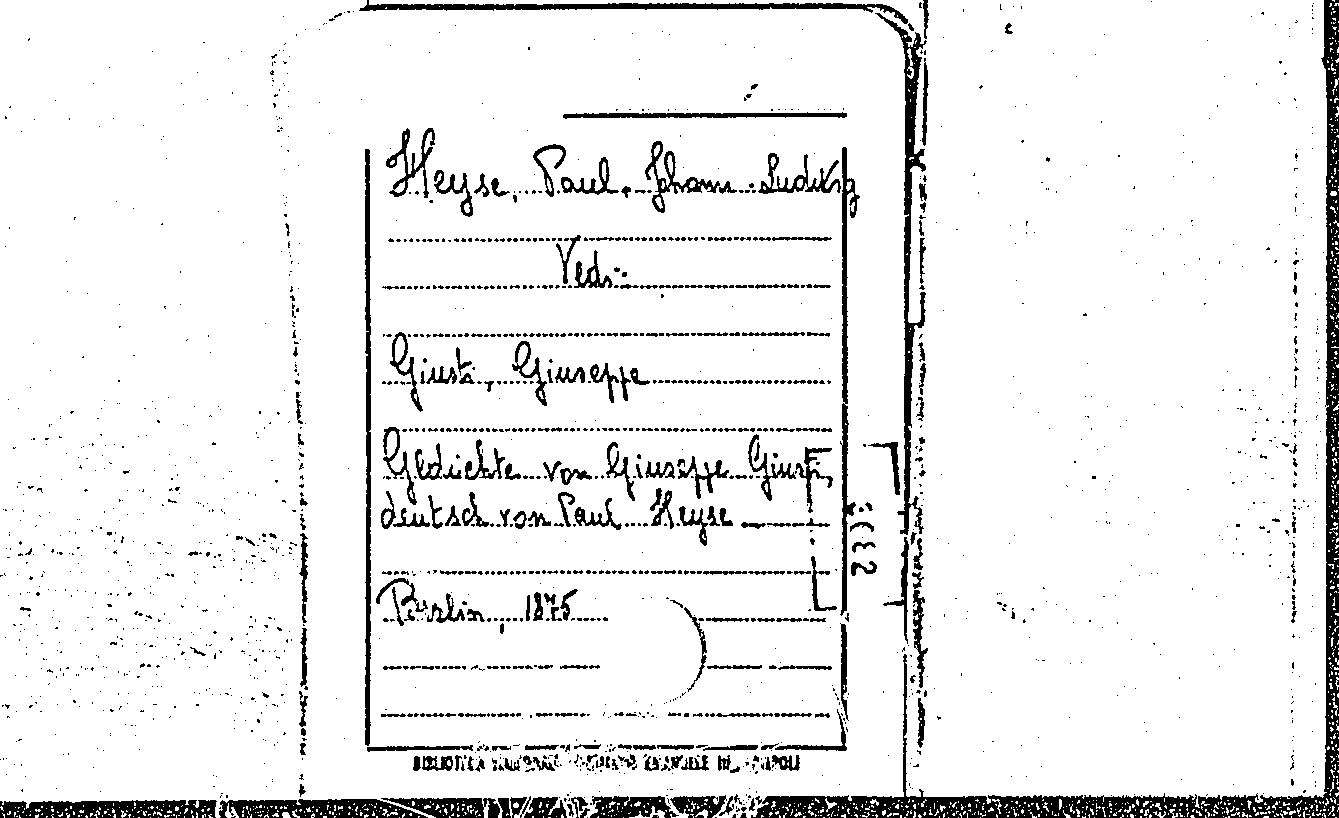 Heyse, Paul. Johann. Ludwig
Vedi:
Giusti, Giuseppe
Gedichte von Giuseppe Giusti,
deutsch von Paul Heyse.
Berlin, 1875
BIBLIOTECA NAZIONALE VITTORIO EMANUELE III NAPOLI